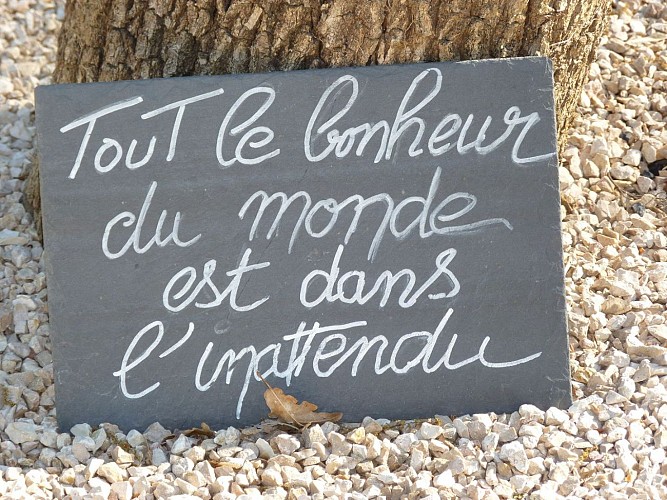 Tout le bonheur
du monde
est dans
l'inattendu